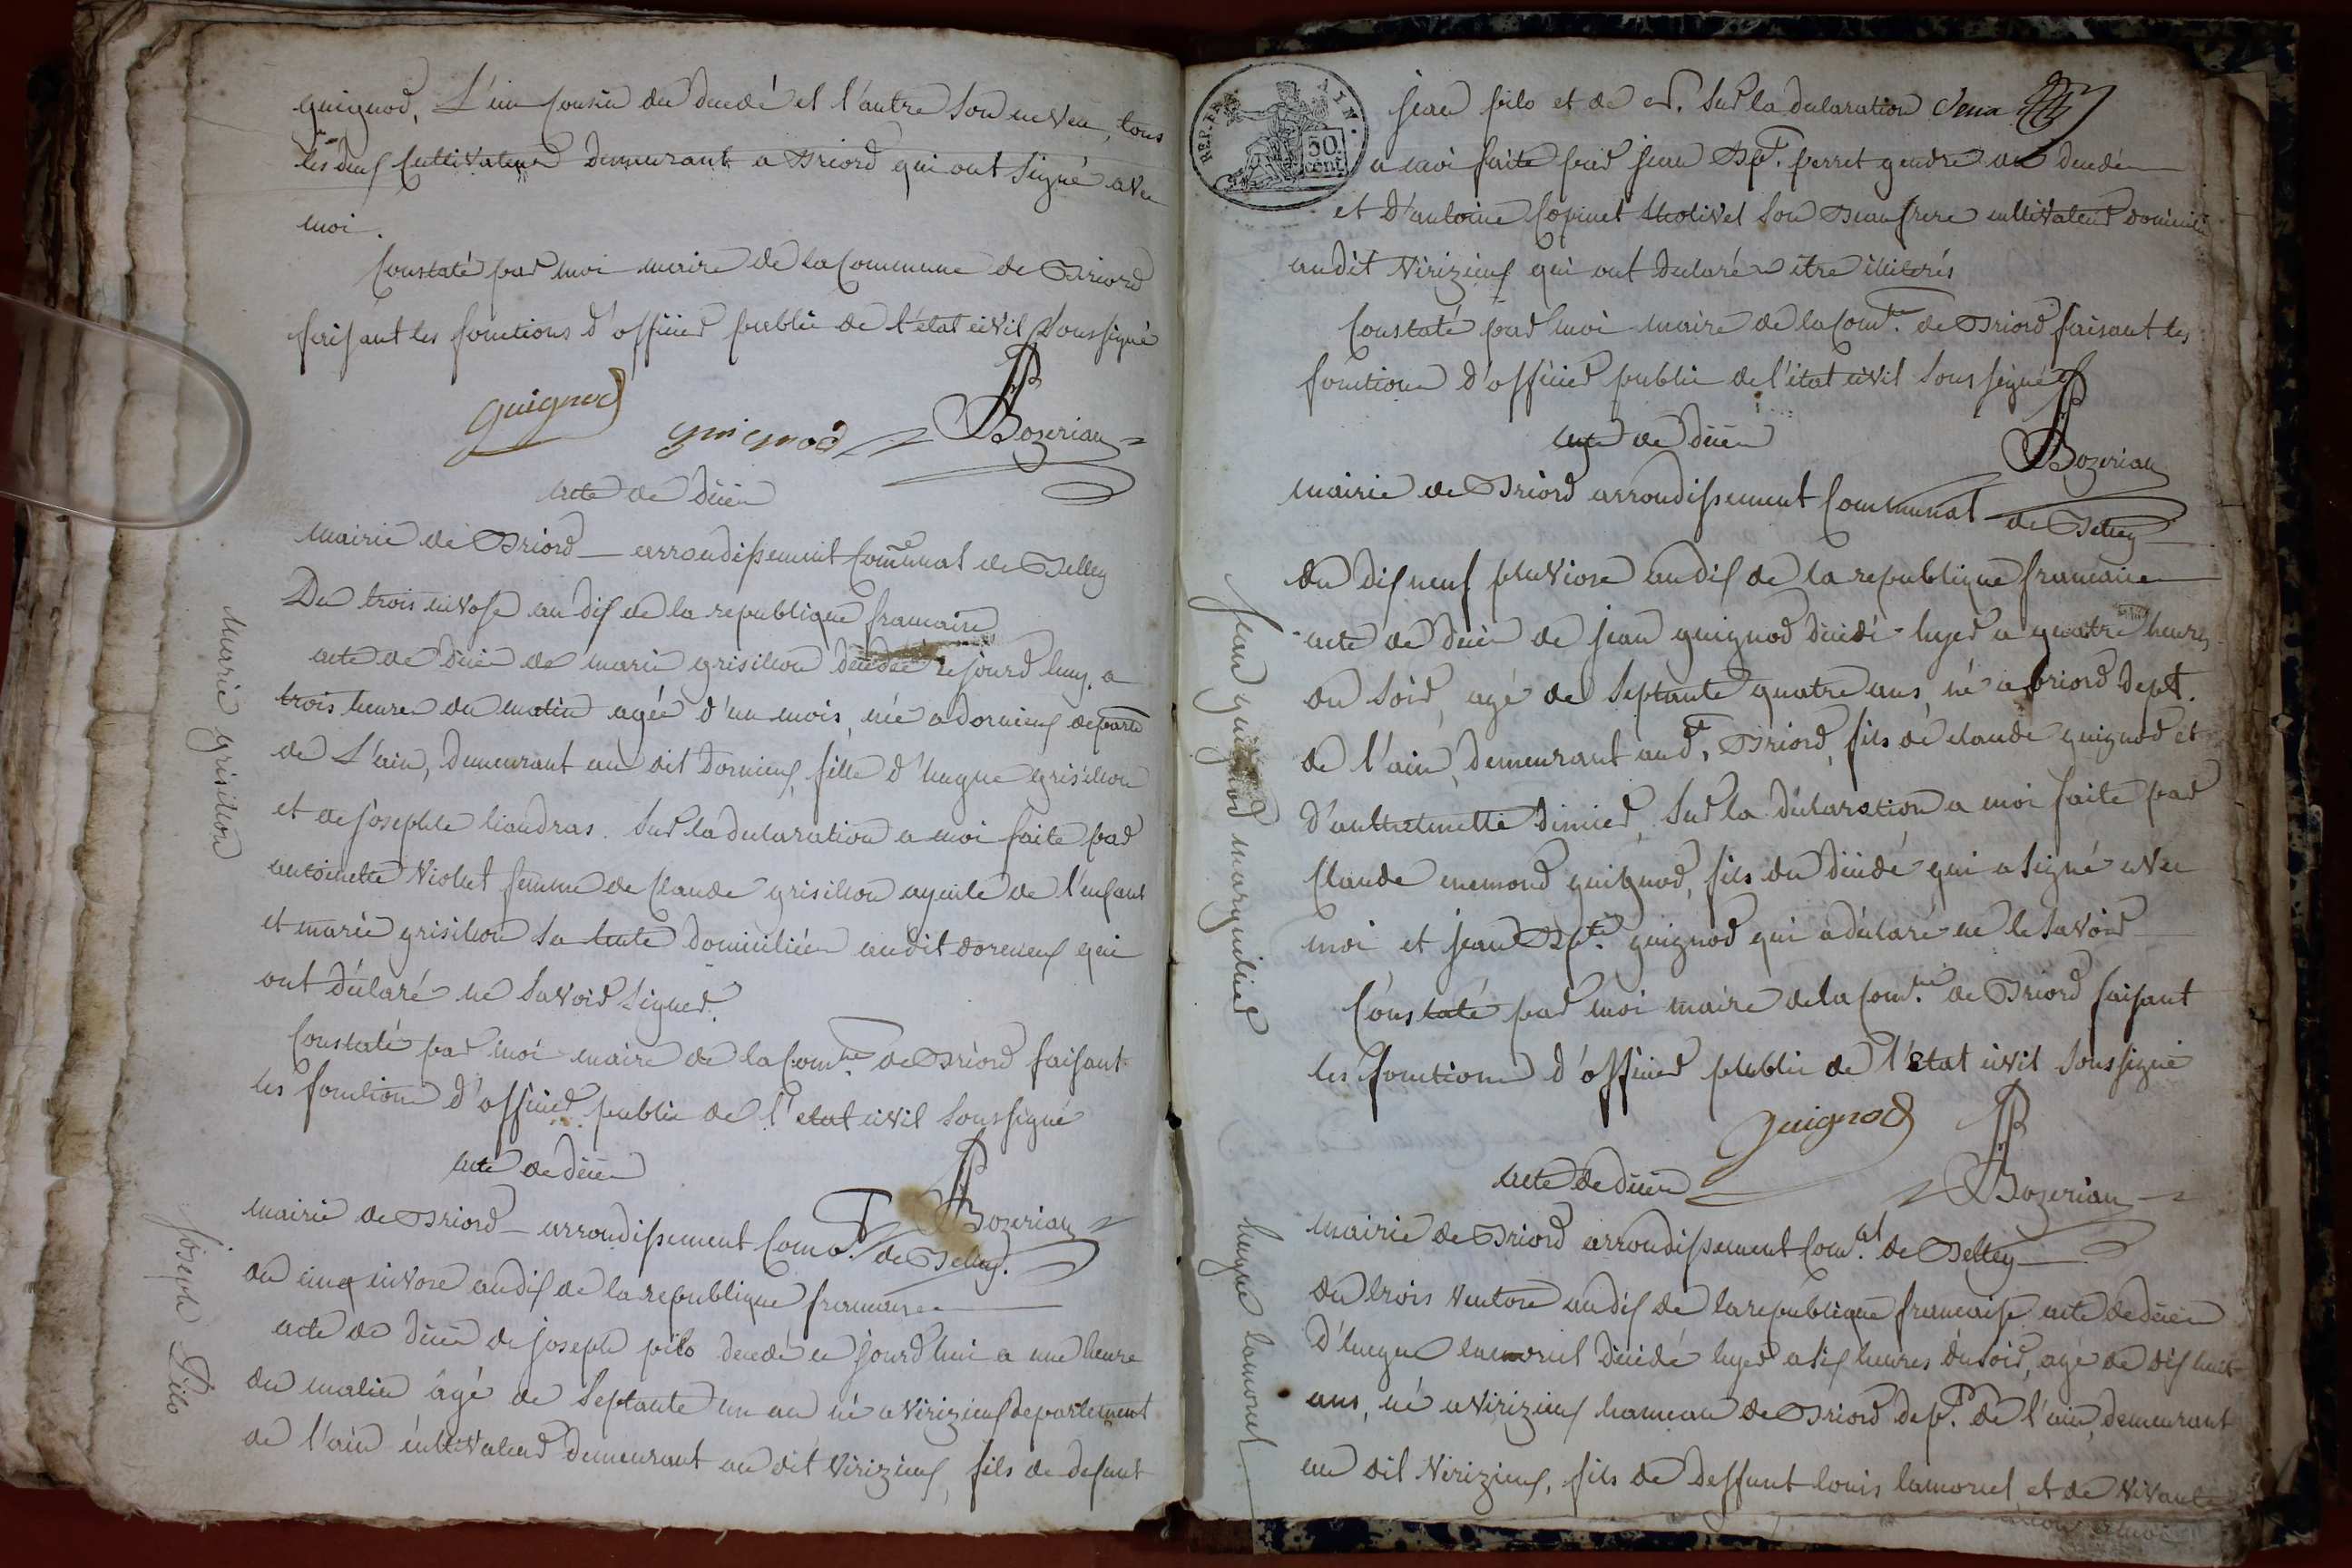 guignod, L'un cousin du decedé et l'autre son neveu, tous
les deux cultivateurs demeurant a Briord qui ont signé avec
moi.
Constaté par moi maire de la commune de Briord
faisant les fonctions d'officier public de l'état civil, soussigné
guignod guignod Bozerian
acte de décès
mairie de Briord arrondissement communal de Belley
Du trois nivose an dix de la republique francaise
acte de décès de marie grisillon décédée ce jourd'huy a
trois heures du matin agée d'un mois, née a dornieux departt
de L'ain, demeurant au dit Dornieux, fille d'hugue grisillon
et de josephte liandras. Sur la declaration a moi faite par
antoinette Violet femme de Claude grisillon ayeule de l'enfant
et marie grisillon sa tente domiciliées audit dornieux qui
ont déclaré ne savoir signer.
marie grisillon
Constaté par moi maire de la comne. de Briord faisant
les fonctions d'officier public de l'etat civil soussigné
Bozerian
acte de décès
mairie de Briord arrondissement Comal. de Belley.
du cinq nivose an dix de la republique francaise
acte de décès de joseph pilo decedé ce jourd'hui a une heure
du matin âgé de septante un an né a Virizieux departement
de l'ain cultivateur demeurant au dit Virizieux, fils de defunt
joseph Pilo
REP. FRA. AIN.
50 cent.
jean pilo et de er. Sur la declaration
a moi faite par jean Bpt. perret gendre du decedé
et d'antoine Copinet son Beaufrere cultivateurs domiciliés
audit Virizieux qui ont declaré être illiterés
Constaté par moi maire de la comne. de Briord faisant les
fonctions d'officier public de l'état civil soussigné
Bozerian
acte de décès
mairie de Briord arrondissement Communal de Belley
du dix neuf pluviose an dix de la republique francaise
acte de décès de jean guignod décédé hyer a quatre heures
du soir, agé de septante quatre ans, né a briord dept.
de l'ain, demeurant audt. Briord, fils de claude guignod et
d'anthelmette dimier, Sur la déclaration a moi faite par
Claude enemond guignod, fils du décédé qui a signé avec
moi et jean Bpte. guignod qui a déclaré ne le savoir
jean guignod marguilier
Constaté par moi maire de la comne. de Briord faisant
les fonctions d'officier public de l'Etat civil soussigné
guignod Bozerian
acte de décès
mairie de Briord arrondissement Comal. de Belley
du trois ventose an dix de la republique francaise acte de décès
D'hugue lamoruel décédé hyer a six heures du soir, agé de dix huit
ans, né a Virizieux hameau de Briord dept. de l'ain, demeurant
au dit Virizieux, fils de deffunt louis lamoruel et de vivante
hugue lamoruel